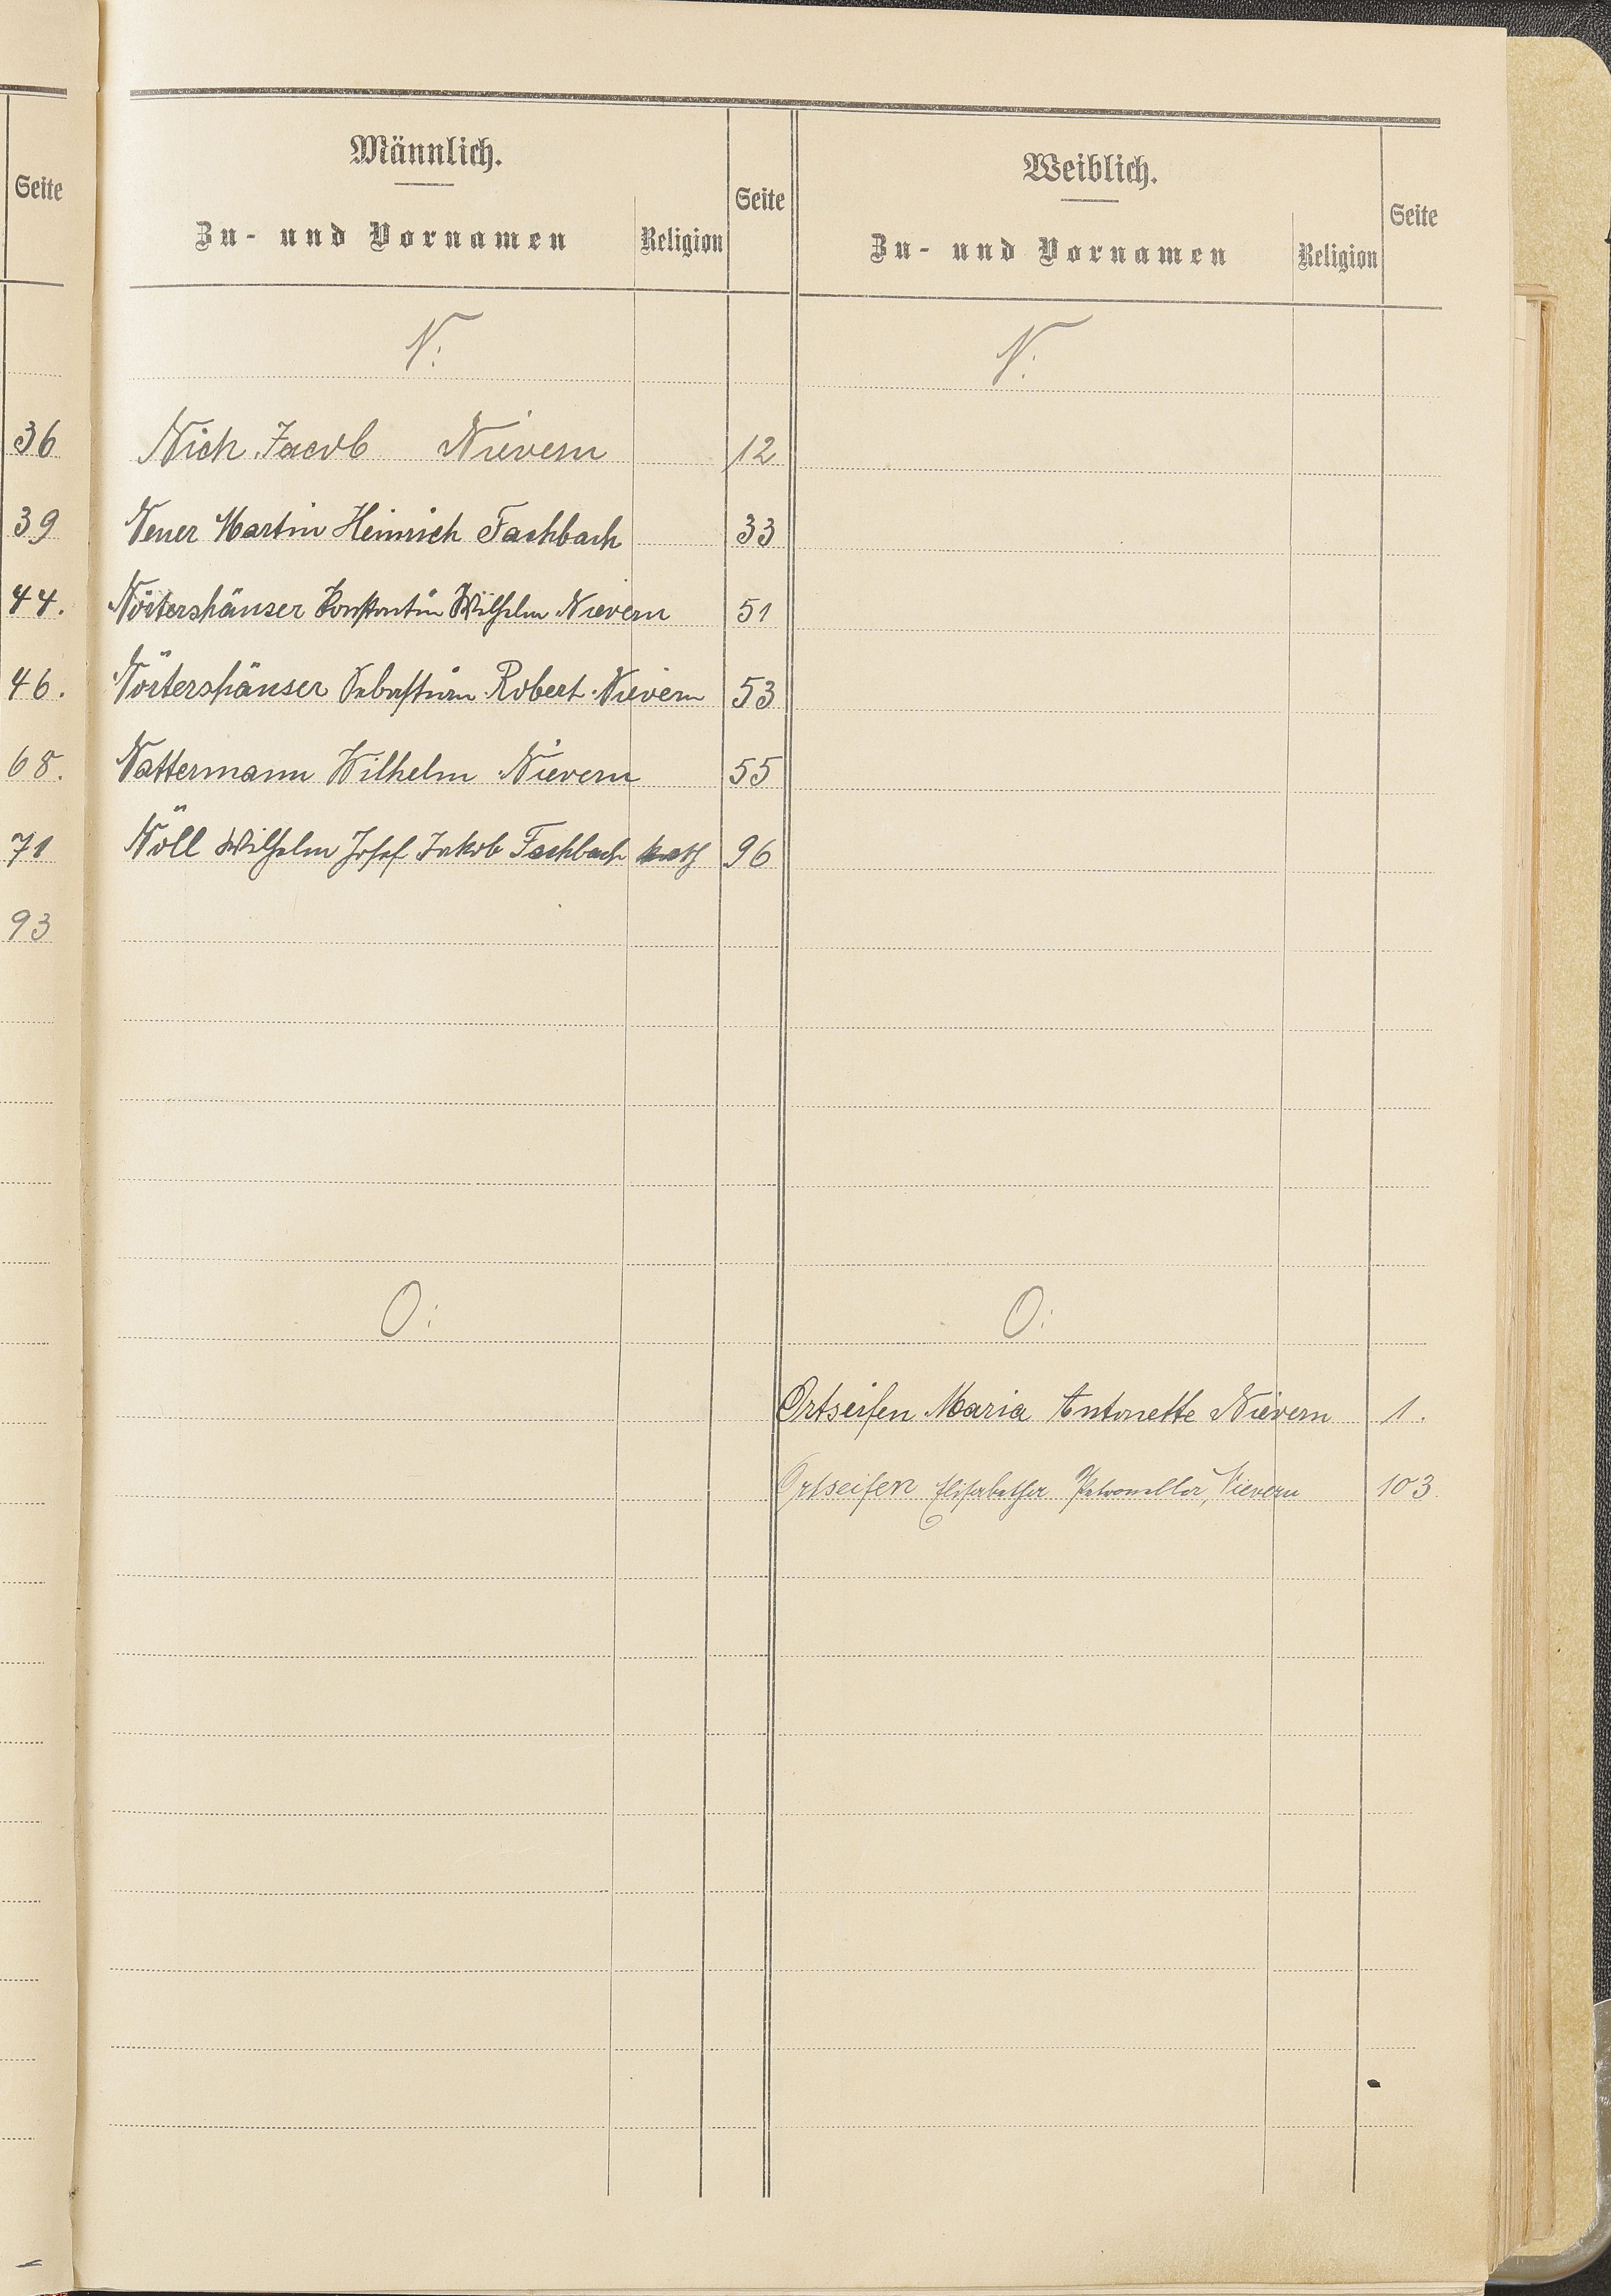 Seite
36
39
44.
46.
68.
71
93
Männlich.
Zu- und Vornamen Religion Seite
N:
Nich Jacob Nievern 12
Neuer Martin Heinrich Fachbach 33
Nörtershäuser Konstantin Wilhelm Nievern 51
Nörtershäuser Sebastian Robert Nievern 53
Nattermann Wilhelm Nievern 55
Nöll Wilhelm Josef Jakob Fachbach kath 96
O:
Weiblich.
Zu- und Vornamen Religion Seite
N:
O:
Ortseifen Maria Antonette Nievern 1.
Ortseifen Elisabetha Petronella, Nievern 103